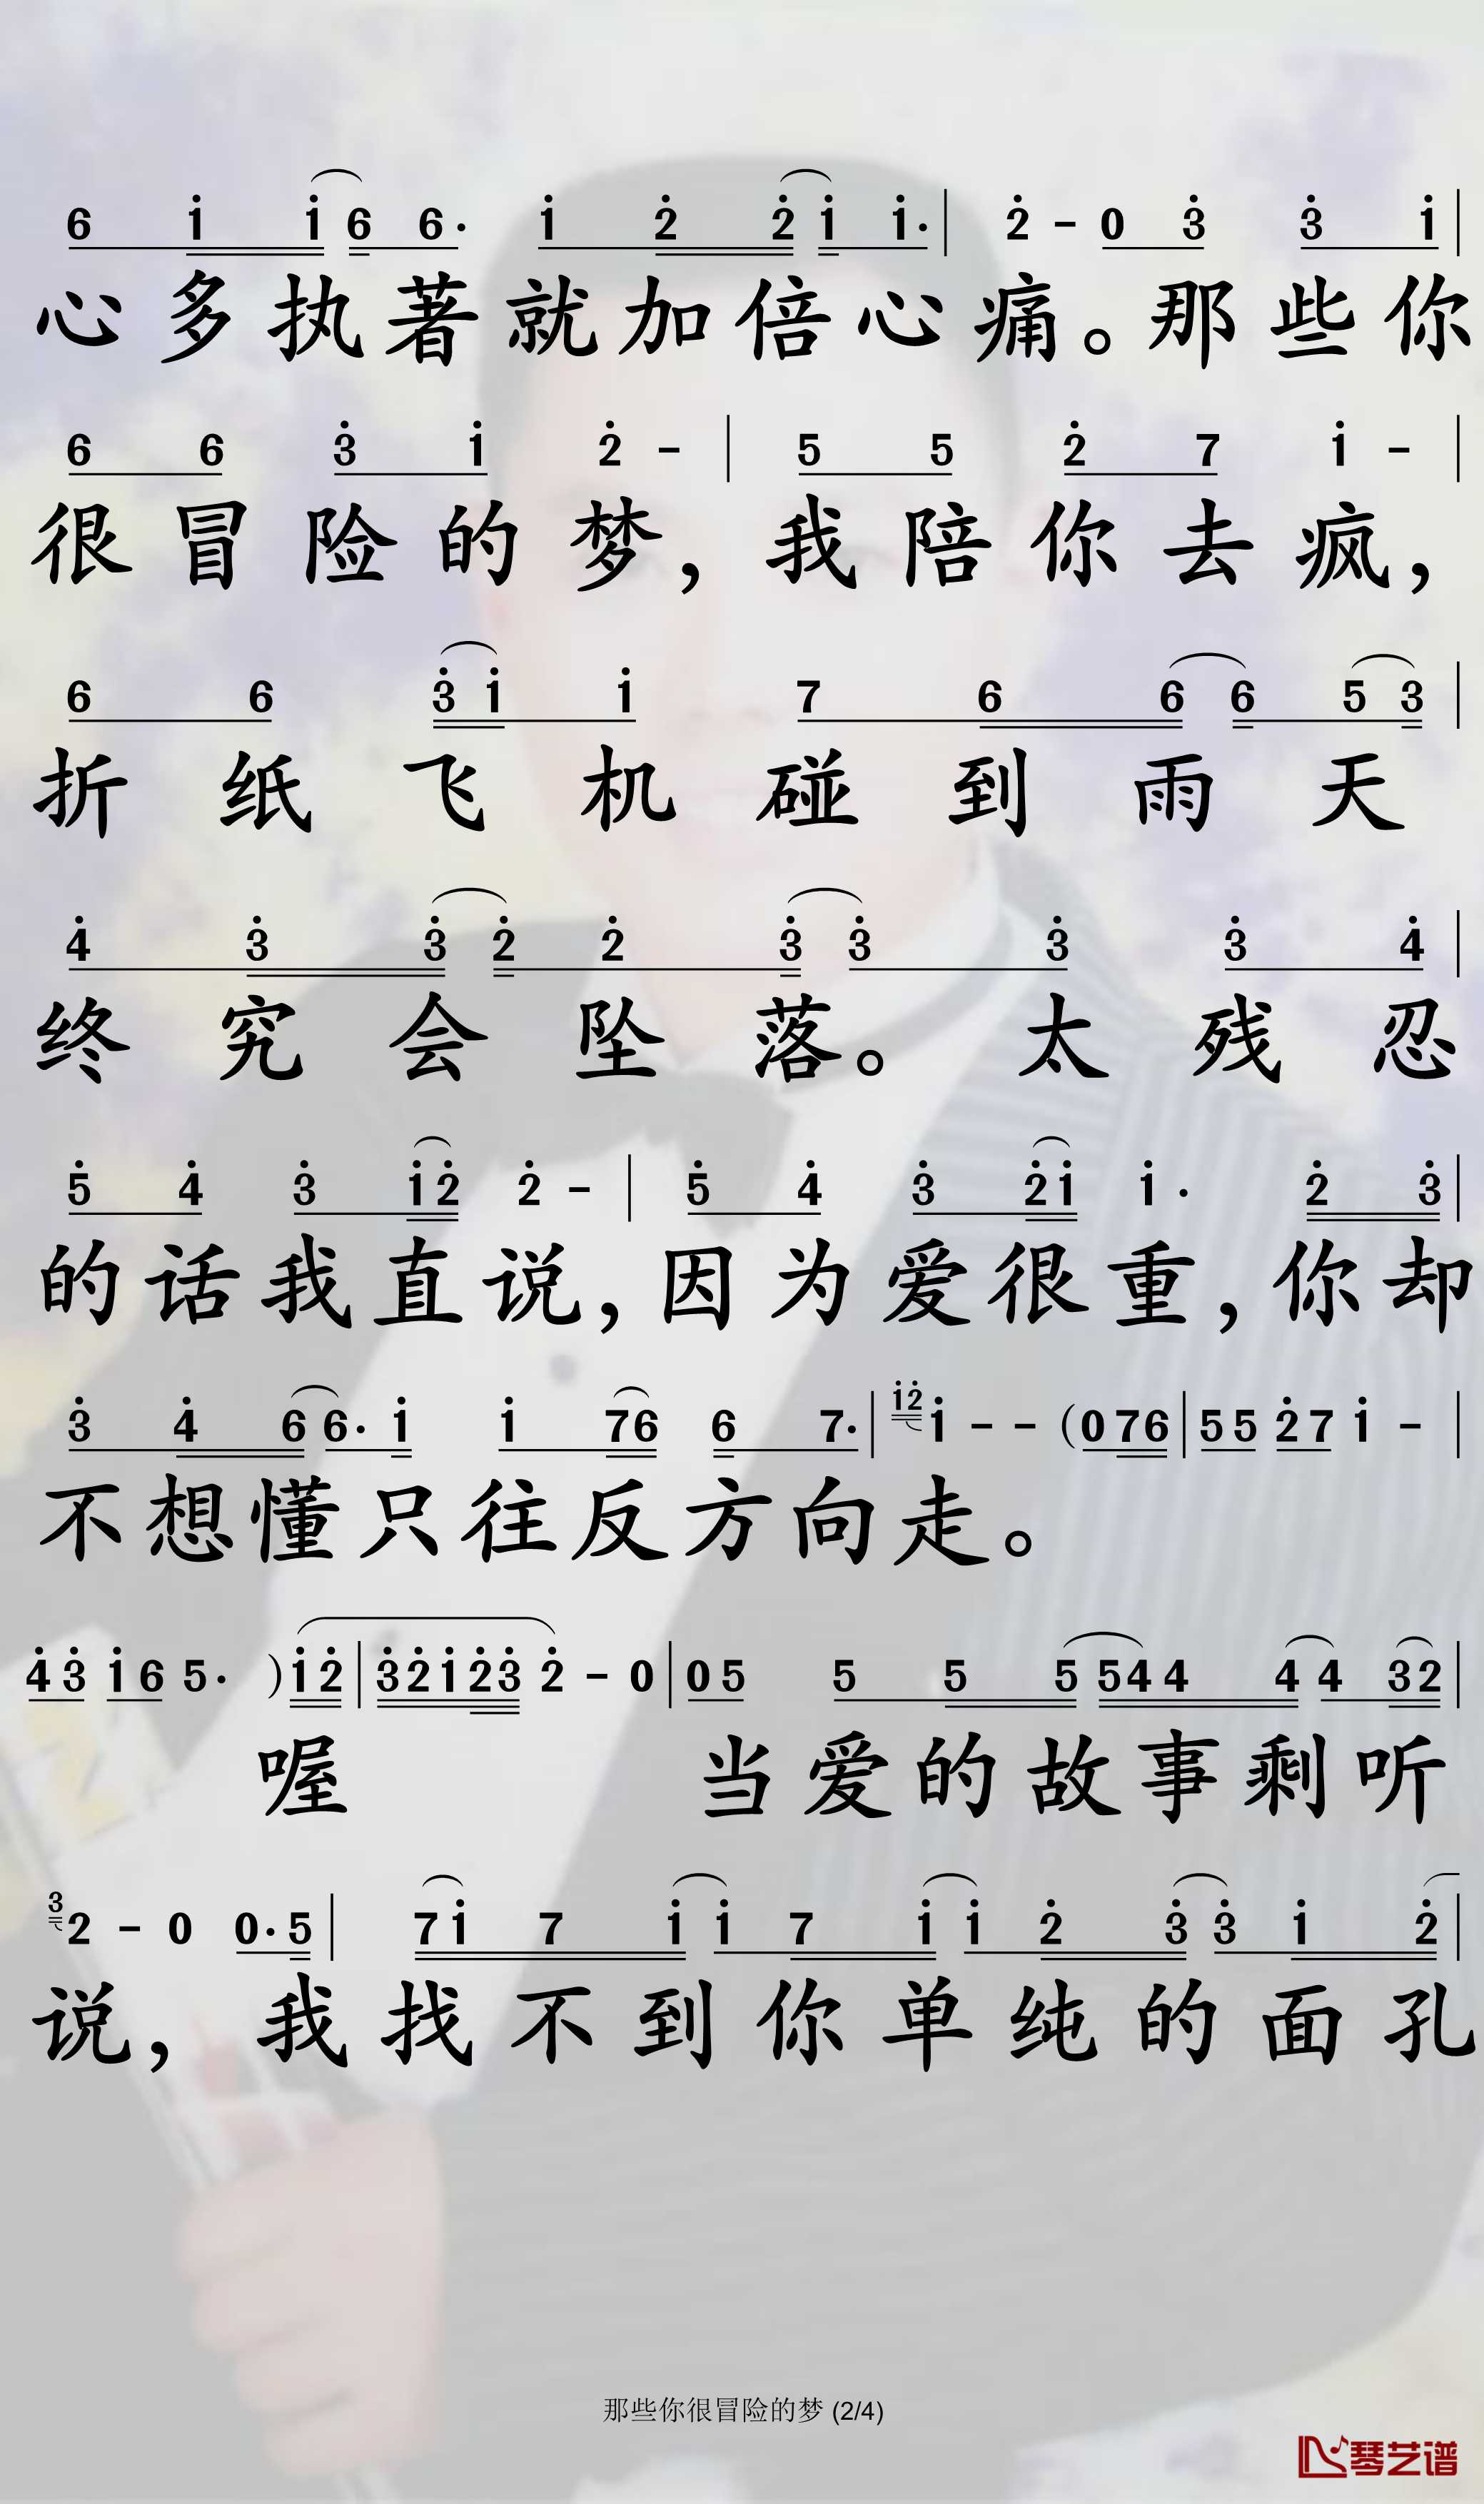 6 1̇ 1̇ 6 6· 1̇ 2̇ 2̇ 1̇ 1̇· | 2̇ - 0 3̇ 3̇ 1̇ |
心多执著就加倍心痛。那些你
6 6 3̇ 1̇ 2̇ - | 5 5 2̇ 7 1̇ - |
很冒险的梦，我陪你去疯，
6 6 3̇ 1̇ 1̇ 7 6 6 6 5 3 |
折纸飞机碰到雨天
4̇ 3̇ 3̇ 2̇ 2̇ 3̇ 3̇ 3̇ 3̇ 4̇ |
终究会坠落。太残忍
5̇ 4̇ 3̇ 1̇ 2̇ 2̇ - | 5̇ 4̇ 3̇ 2̇ 1̇ 1̇· 2̇ 3̇ |
的话我直说，因为爱很重，你却
3̇ 4̇ 6 6· 1̇ 1̇ 7 6 6 7· | 1̇ 2̇ 1̇ - - (0 7 6 | 5 5 2̇ 7 1̇ - |
不想懂只往反方向走。
4̇ 3̇ 1̇ 6 5· ) 1̇ 2̇ | 3̇ 2̇ 1̇ 2̇ 3̇ 2̇ - 0 | 0 5 5 5 5 5 4 4 4 4 3 2 |
喔 当爱的故事剩听
3 2 - 0 0· 5 | 7 1̇ 7 1̇ 1̇ 7 1̇ 1̇ 2̇ 3̇ 3̇ 1̇ 2̇ |
说，我找不到你单纯的面孔
那些你很冒险的梦 (2/4)
琴艺谱